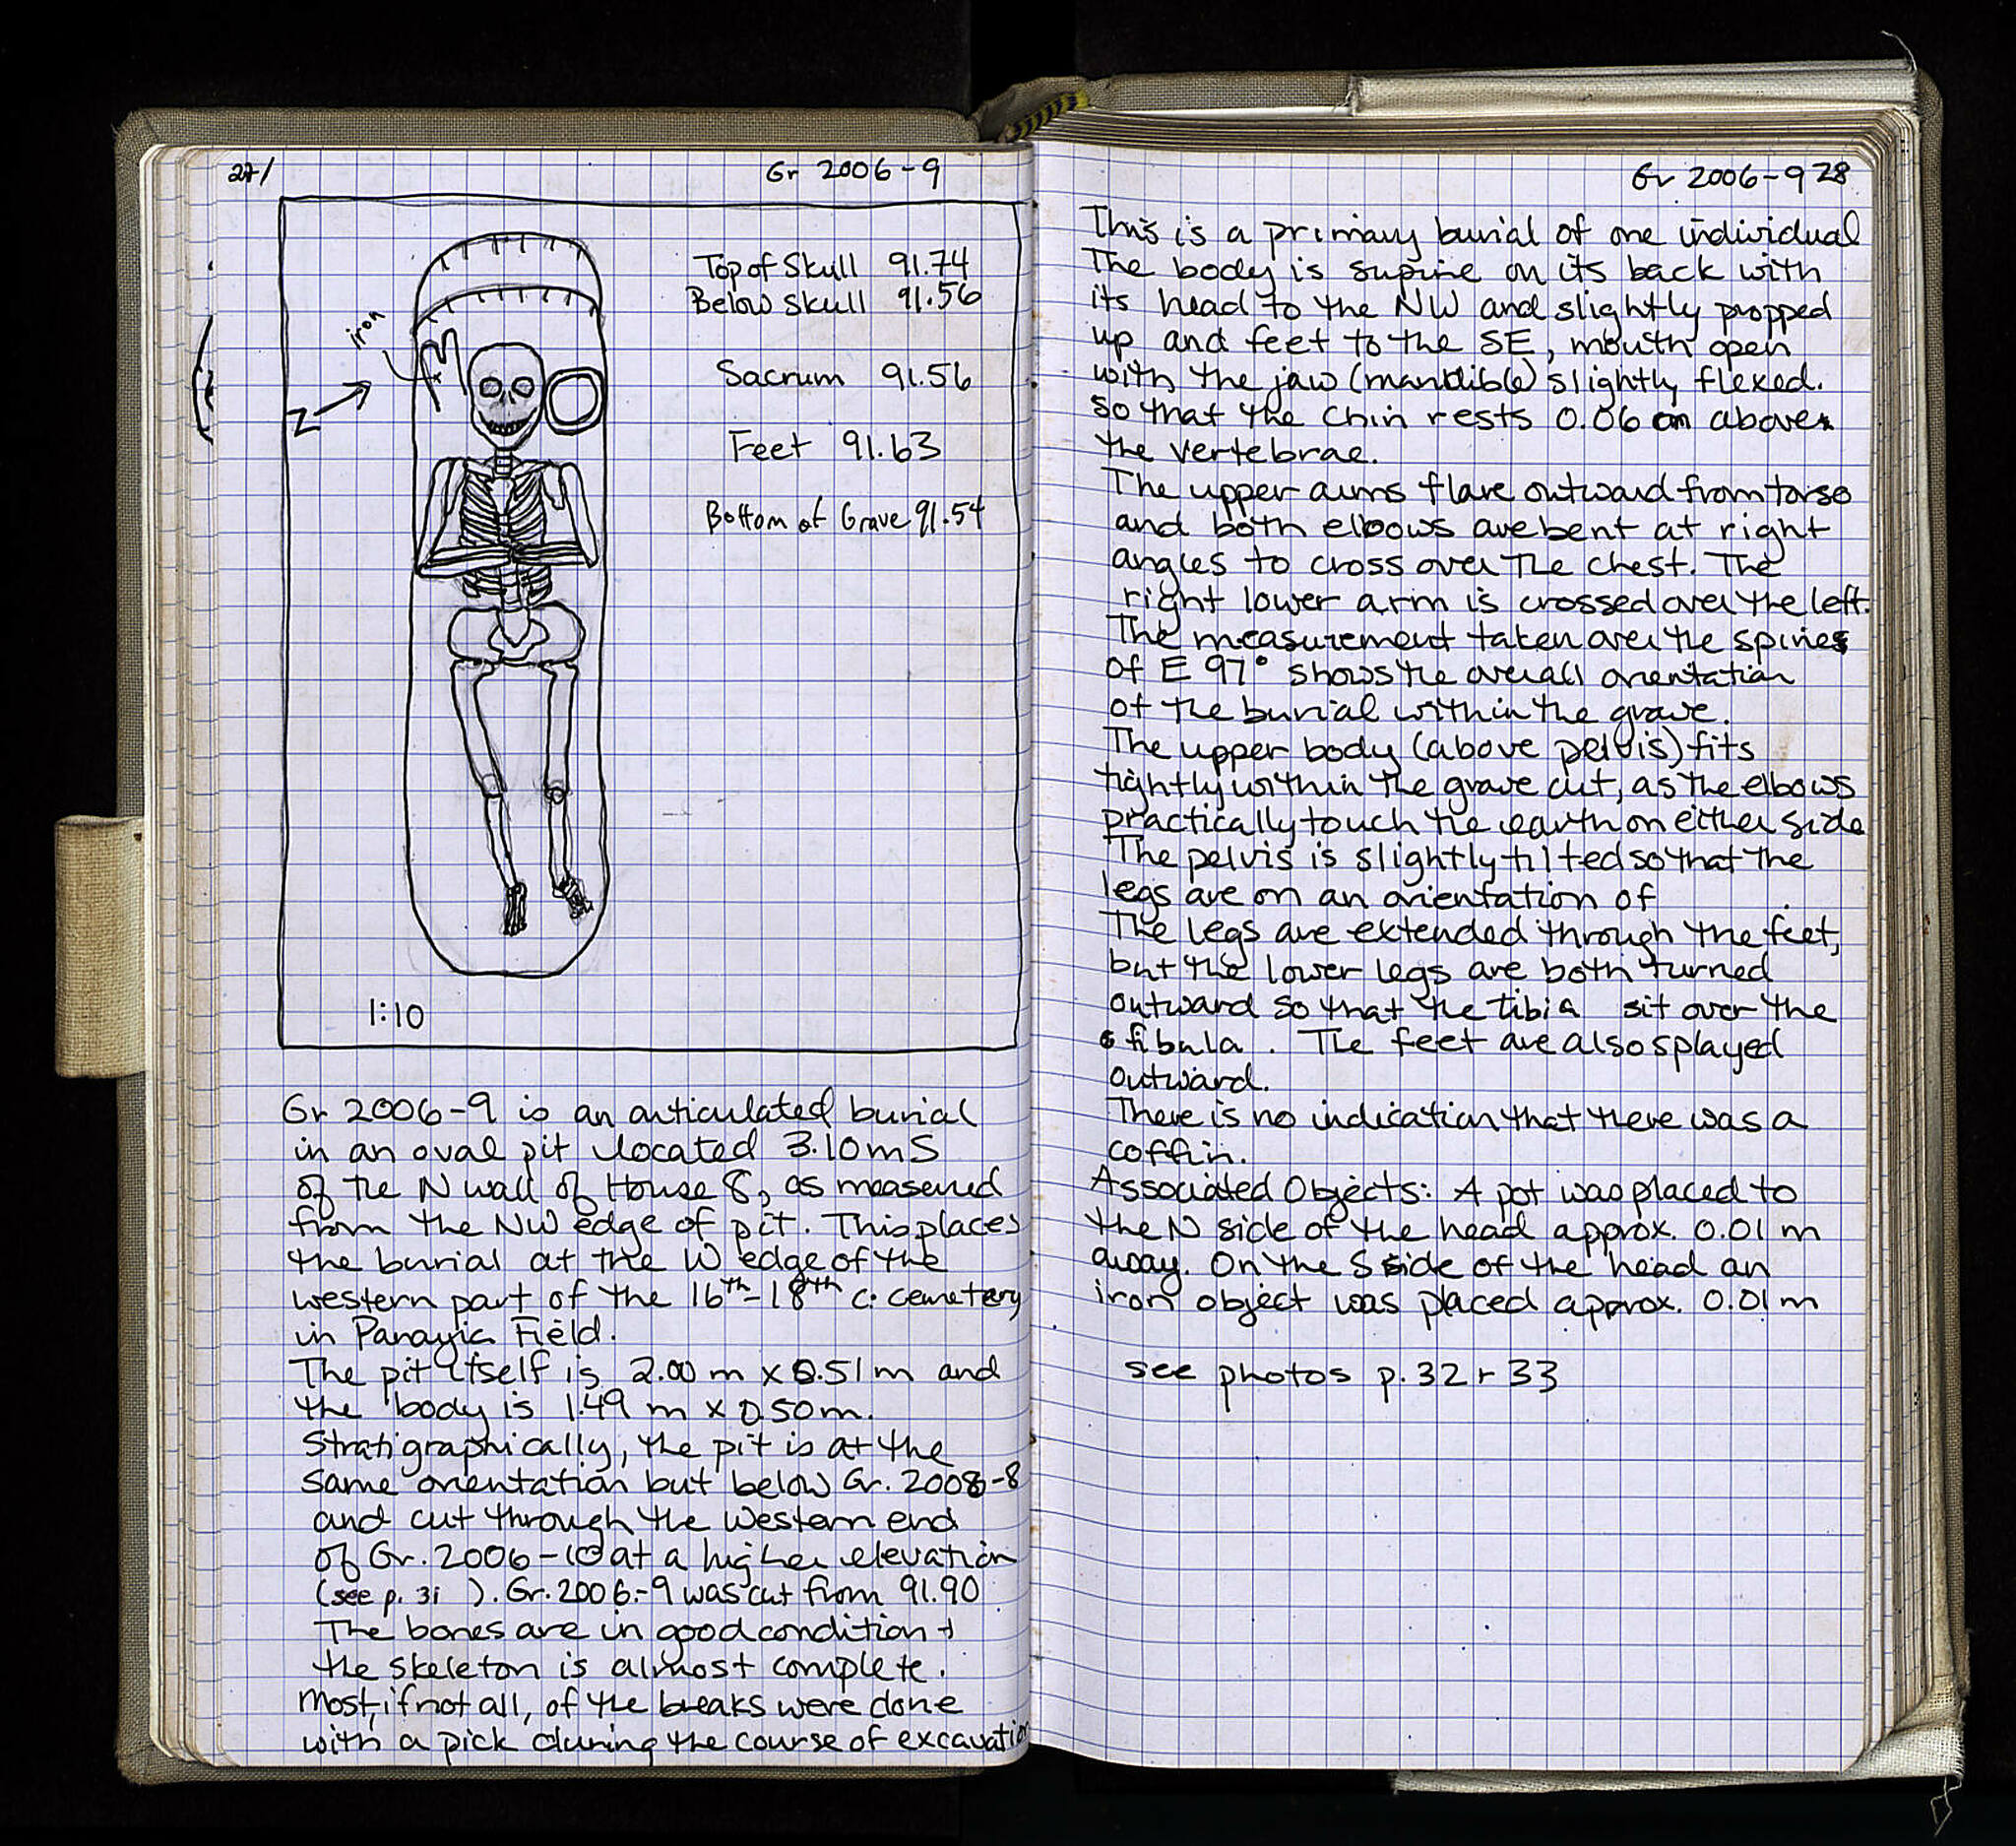 27/
Gr 2006-9
Top of Skull 91.74
Below skull 91.56
iron
Sacrum 91.56
N
Feet 91.63
Bottom of Grave 91.54
1:10
Gr 2006-9 is an articulated burial
in an oval pit located 3.10 m S
of the N wall of House 8, as measured
from the NW edge of pit. This places
the burial at the W edge of the
western part of the 16th-18th c. cemetery
in Panayia Field.
The pit itself is 2.00 m x 0.51 m and
the body is 1.49 m x 0.50 m.
Stratigraphically, the pit is at the
same orientation but below Gr. 2006-8
and cut through the western end
of Gr. 2006-10 at a higher elevation
(see p. 31 ). Gr. 2006-9 was cut from 91.90
The bones are in good condition +
the skeleton is almost complete.
most, if not all, of the breaks were done
with a pick during the course of excavation
Gr 2006-9 28
This is a primary burial of one individual
The body is supine on its back with
its head to the NW and slightly propped
up and feet to the SE, mouth open
with the jaw (mandible) slightly flexed.
so that the chin rests 0.06 m above
the vertebrae.
The upper arms flare outward from torso
and both elbows are bent at right
angles to cross over the chest. The
right lower arm is crossed over the left.
The measurement taken over the spine
of E 97° shows the overall orientation
of the burial within the grave.
The upper body (above pelvis) fits
tightly within the grave cut, as the elbows
practically touch the earth on either side
The pelvis is slightly tilted so that the
legs are on an orientation of
The legs are extended through the feet,
but the lower legs are both turned
outward so that the tibia sit over the
fibula. The feet are also splayed
outward.
There is no indication that there was a
coffin.
Associated Objects: A pot was placed to
the N side of the head approx. 0.01 m
away. On the S side of the head an
iron object was placed approx. 0.01 m
see photos p. 32 + 33